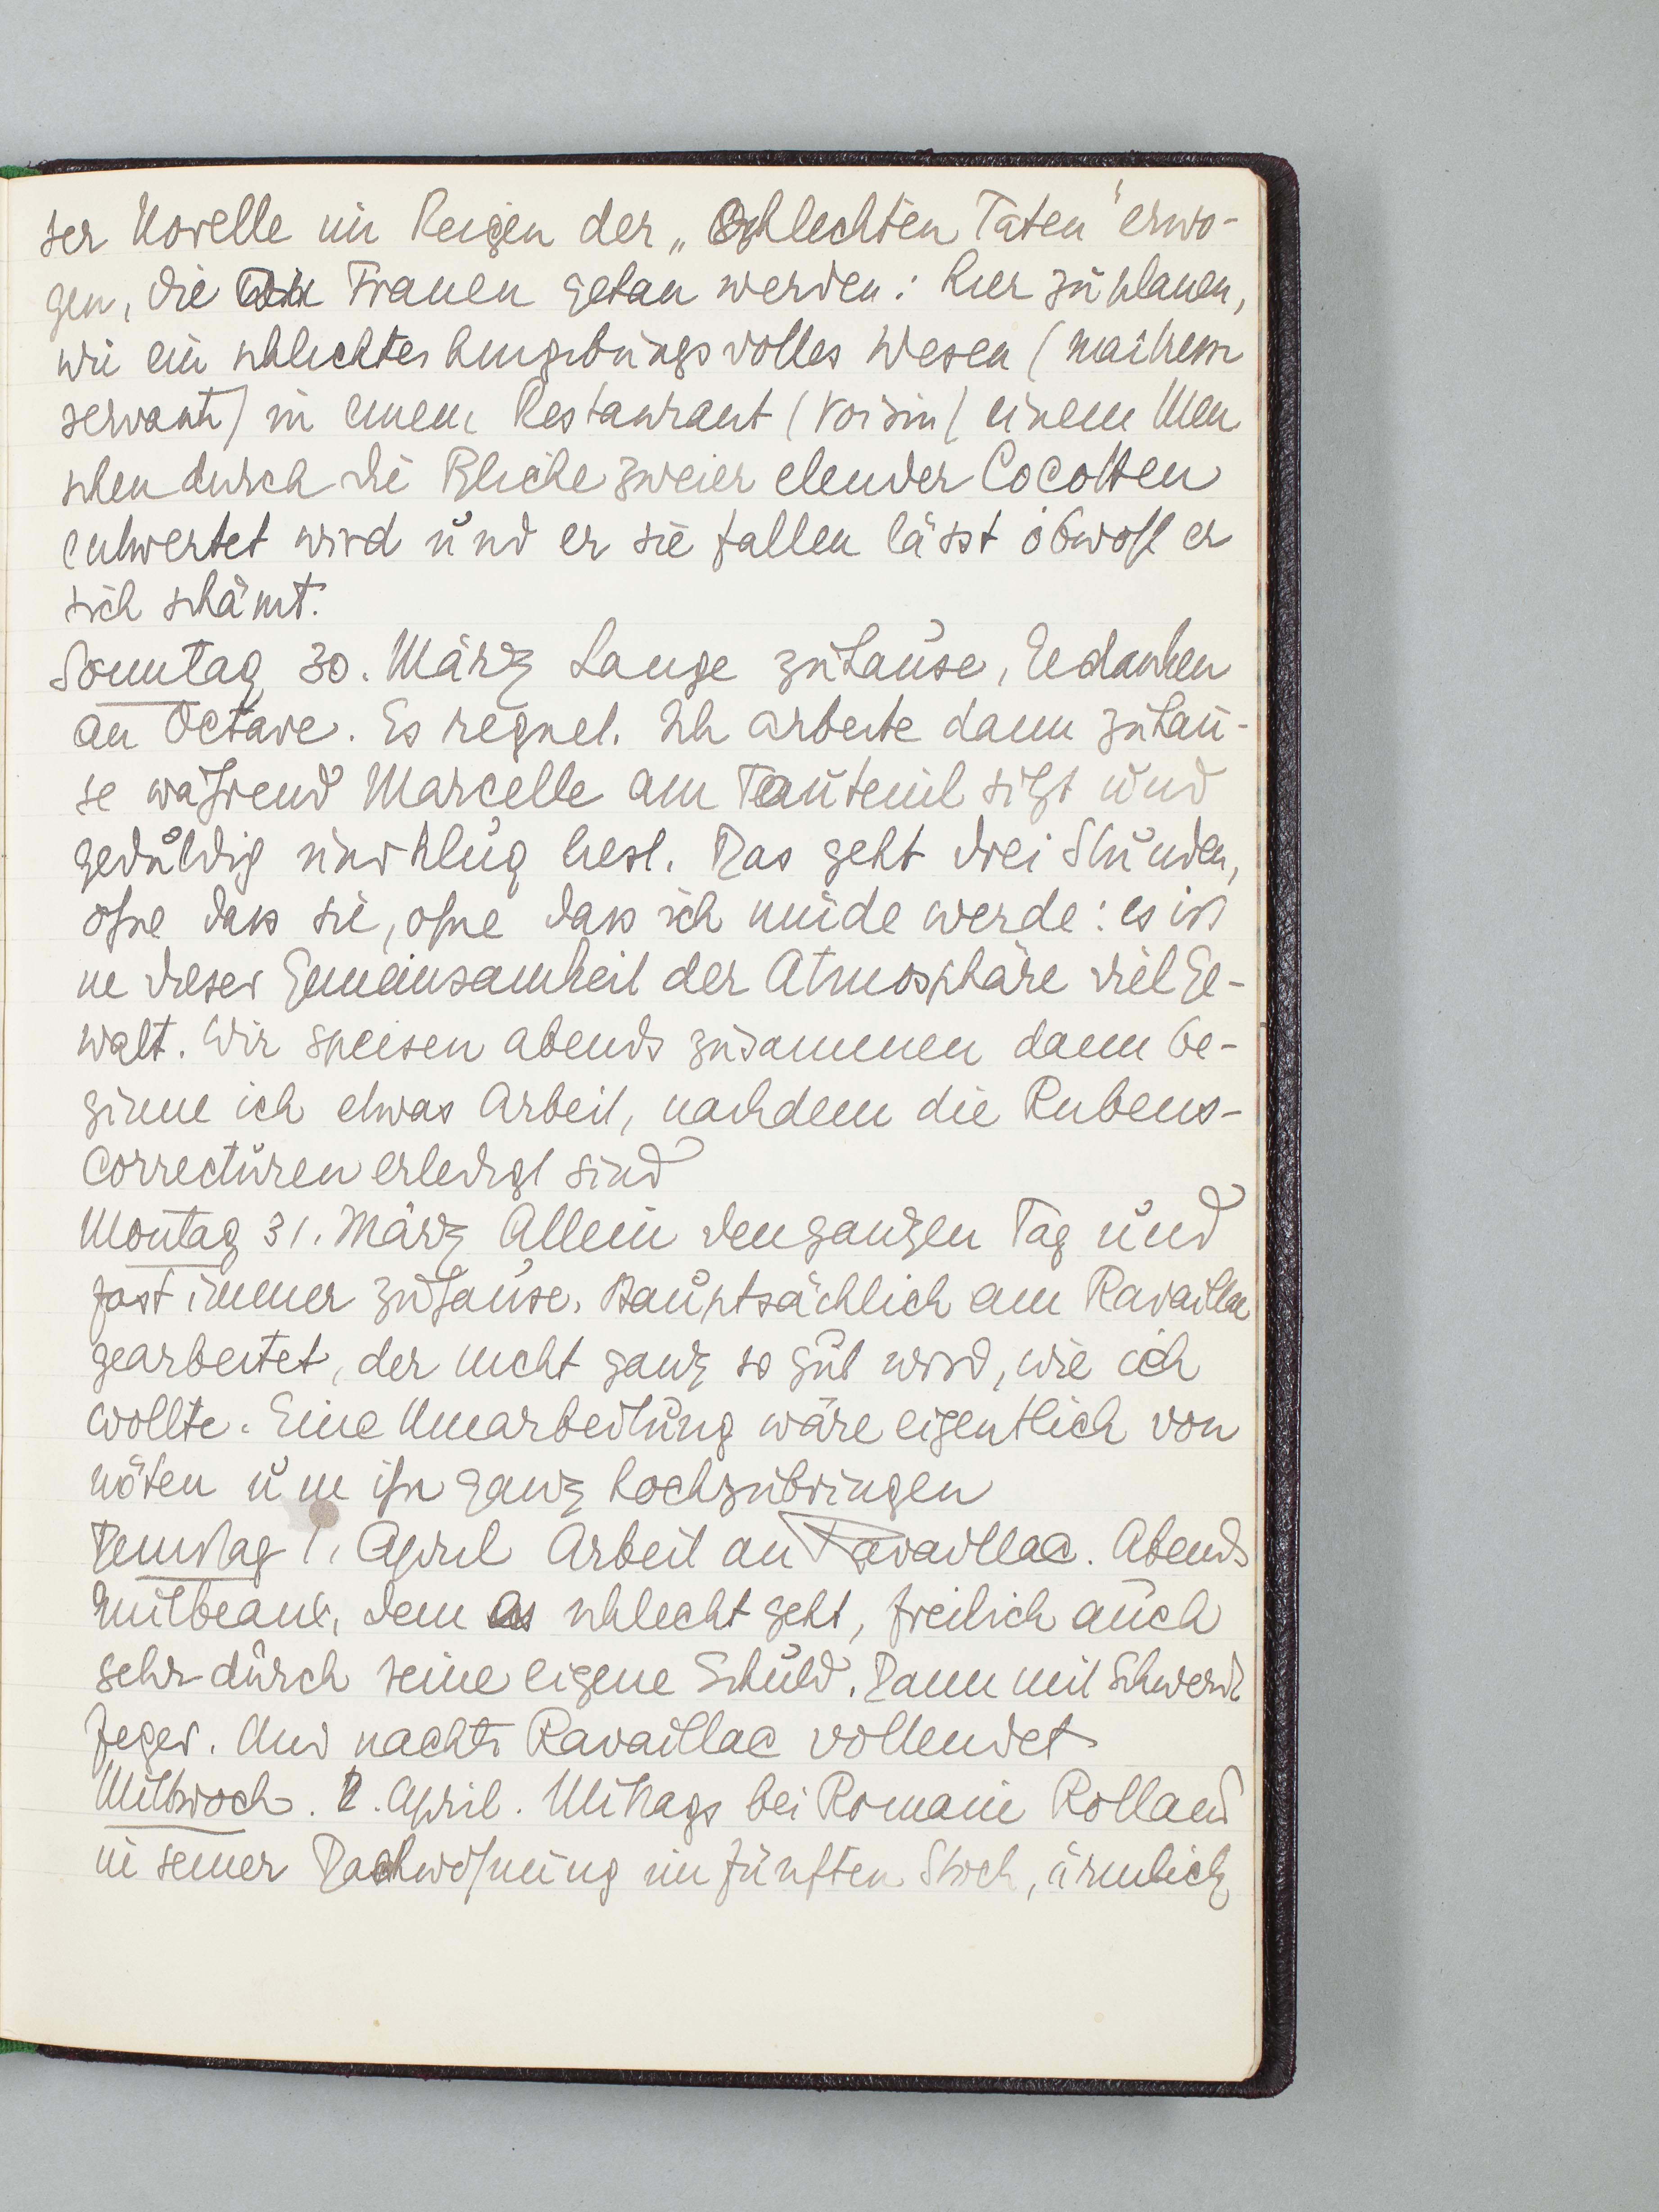 ser Novelle im Reigen der „Schlechten Taten" erwo-
gen, die Frauen getan werden: hier zu planen,
wie ein schlichtes hingebungsvolles Wesen (maitresse
servante) in einem Restaurant (Voisin) einem Men
schen durch die Blicke zweier elender Cocotten
entwertet wird und er sie fallen lässt obwohl er
sich schämt.
Sonntag 30. März Lange zuhause, Gedanken
an Octave. Es regnet. Ich arbeite dann zuhau-
se während Marcelle am Fauteuil sitzt und
geduldig und klug liest. Das geht drei Stunden,
ohne dass sie, ohne dass ich müde werde: es ist
in dieser Gemeinsamkeit der Atmosphäre viel Ge-
walt. Wir speisen abends zusammen dann be-
ginne ich etwas Arbeit, nachdem die Rubens-
Correcturen erledigt sind
Montag 31. März Allein den ganzen Tag und
fast immer zuhause. Hauptsächlich am Ravaillac
gearbeitet, der nicht ganz so gut wird, wie ich
wollte. Eine Umarbeitung wäre eigentlich von
nöten um ihn ganz hochzubringen
Dienstag 1. April Arbeit an Ravaillac. Abends
Guilbeaux, dem es schlecht geht, freilich auch
sehr durch seine eigene Schuld. Dann mit Schwerdt
feger. Und nachts Ravaillac vollendet
Mittwoch. 2. April. Mittags bei Romain Rolland
in seiner Dachwohnung im fünften Stock, ärmlich